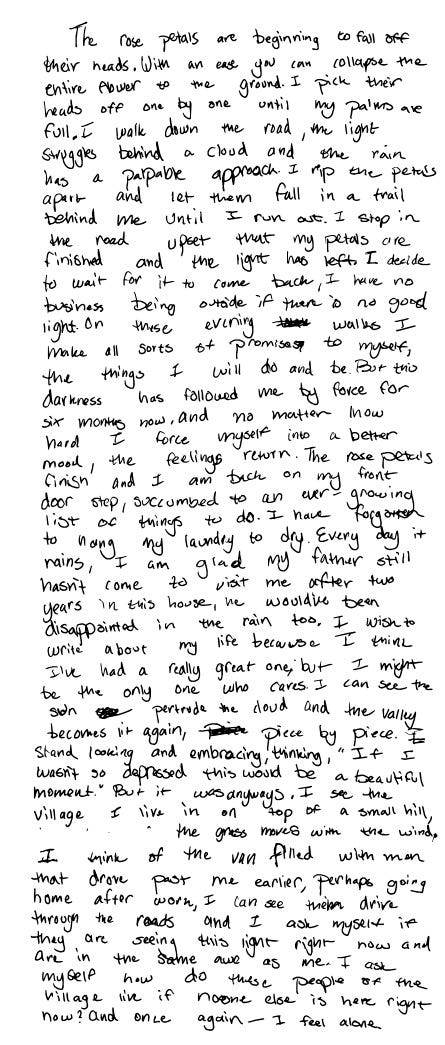 The rose petals are beginning to fall off
their heads. With an ease you can collapse the
entire flower to the ground. I pick their
heads off one by one until my palms are
full. I walk down the road, the light
struggles behind a cloud and the rain
has a palpable approach. I rip the petals
apart and let them fall in a trail
behind me until I run out. I stop in
the road upset that my petals are
finished and the light has left. I decide
to wait for it to come back, I have no
business being outside if there is no good
light. On these evening walks I
make all sorts of promises to myself,
the things I will do and be. But this
darkness has followed me by force for
six months now, and no matter how
hard I force myself into a better
mood, the feelings return. The rose petals
finish and I am back on my front
door step, succumbed to an ever-growing
list of things to do. I have forgotten
to hang my laundry to dry. Every day it
rains, I am glad my father still
hasn't come to visit me after two
years in this house, he would've been
disappointed in the rain too. I wish to
write about my life because I think
I've had a really great one, but I might
be the only one who cares. I can see the
sun pertrude the cloud and the valley
becomes it again, piece by piece. I
stand looking and embracing, thinking, "If I
wasn't so depressed this would be a beautiful
moment." But it was anyways. I see the
village I live in on top of a small hill,
the grass moves with the wind.
I think of the van filled with men
that drove past me earlier, perhaps going
home after work, I can see them drive
through the roads and I ask myself if
they are seeing this light right now and
are in the same awe as me. I ask
myself how do these people of the
village live if noone else is here right
now? And once again — I feel alone